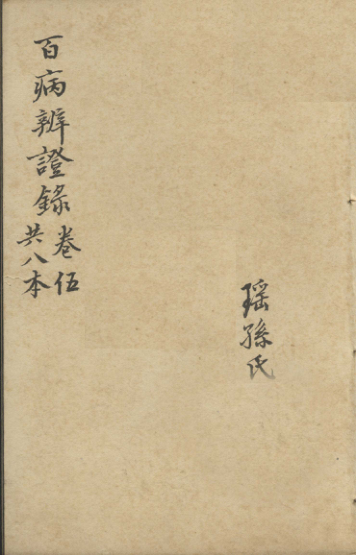 百病辨證錄卷伍
共八本
瑶孫氏